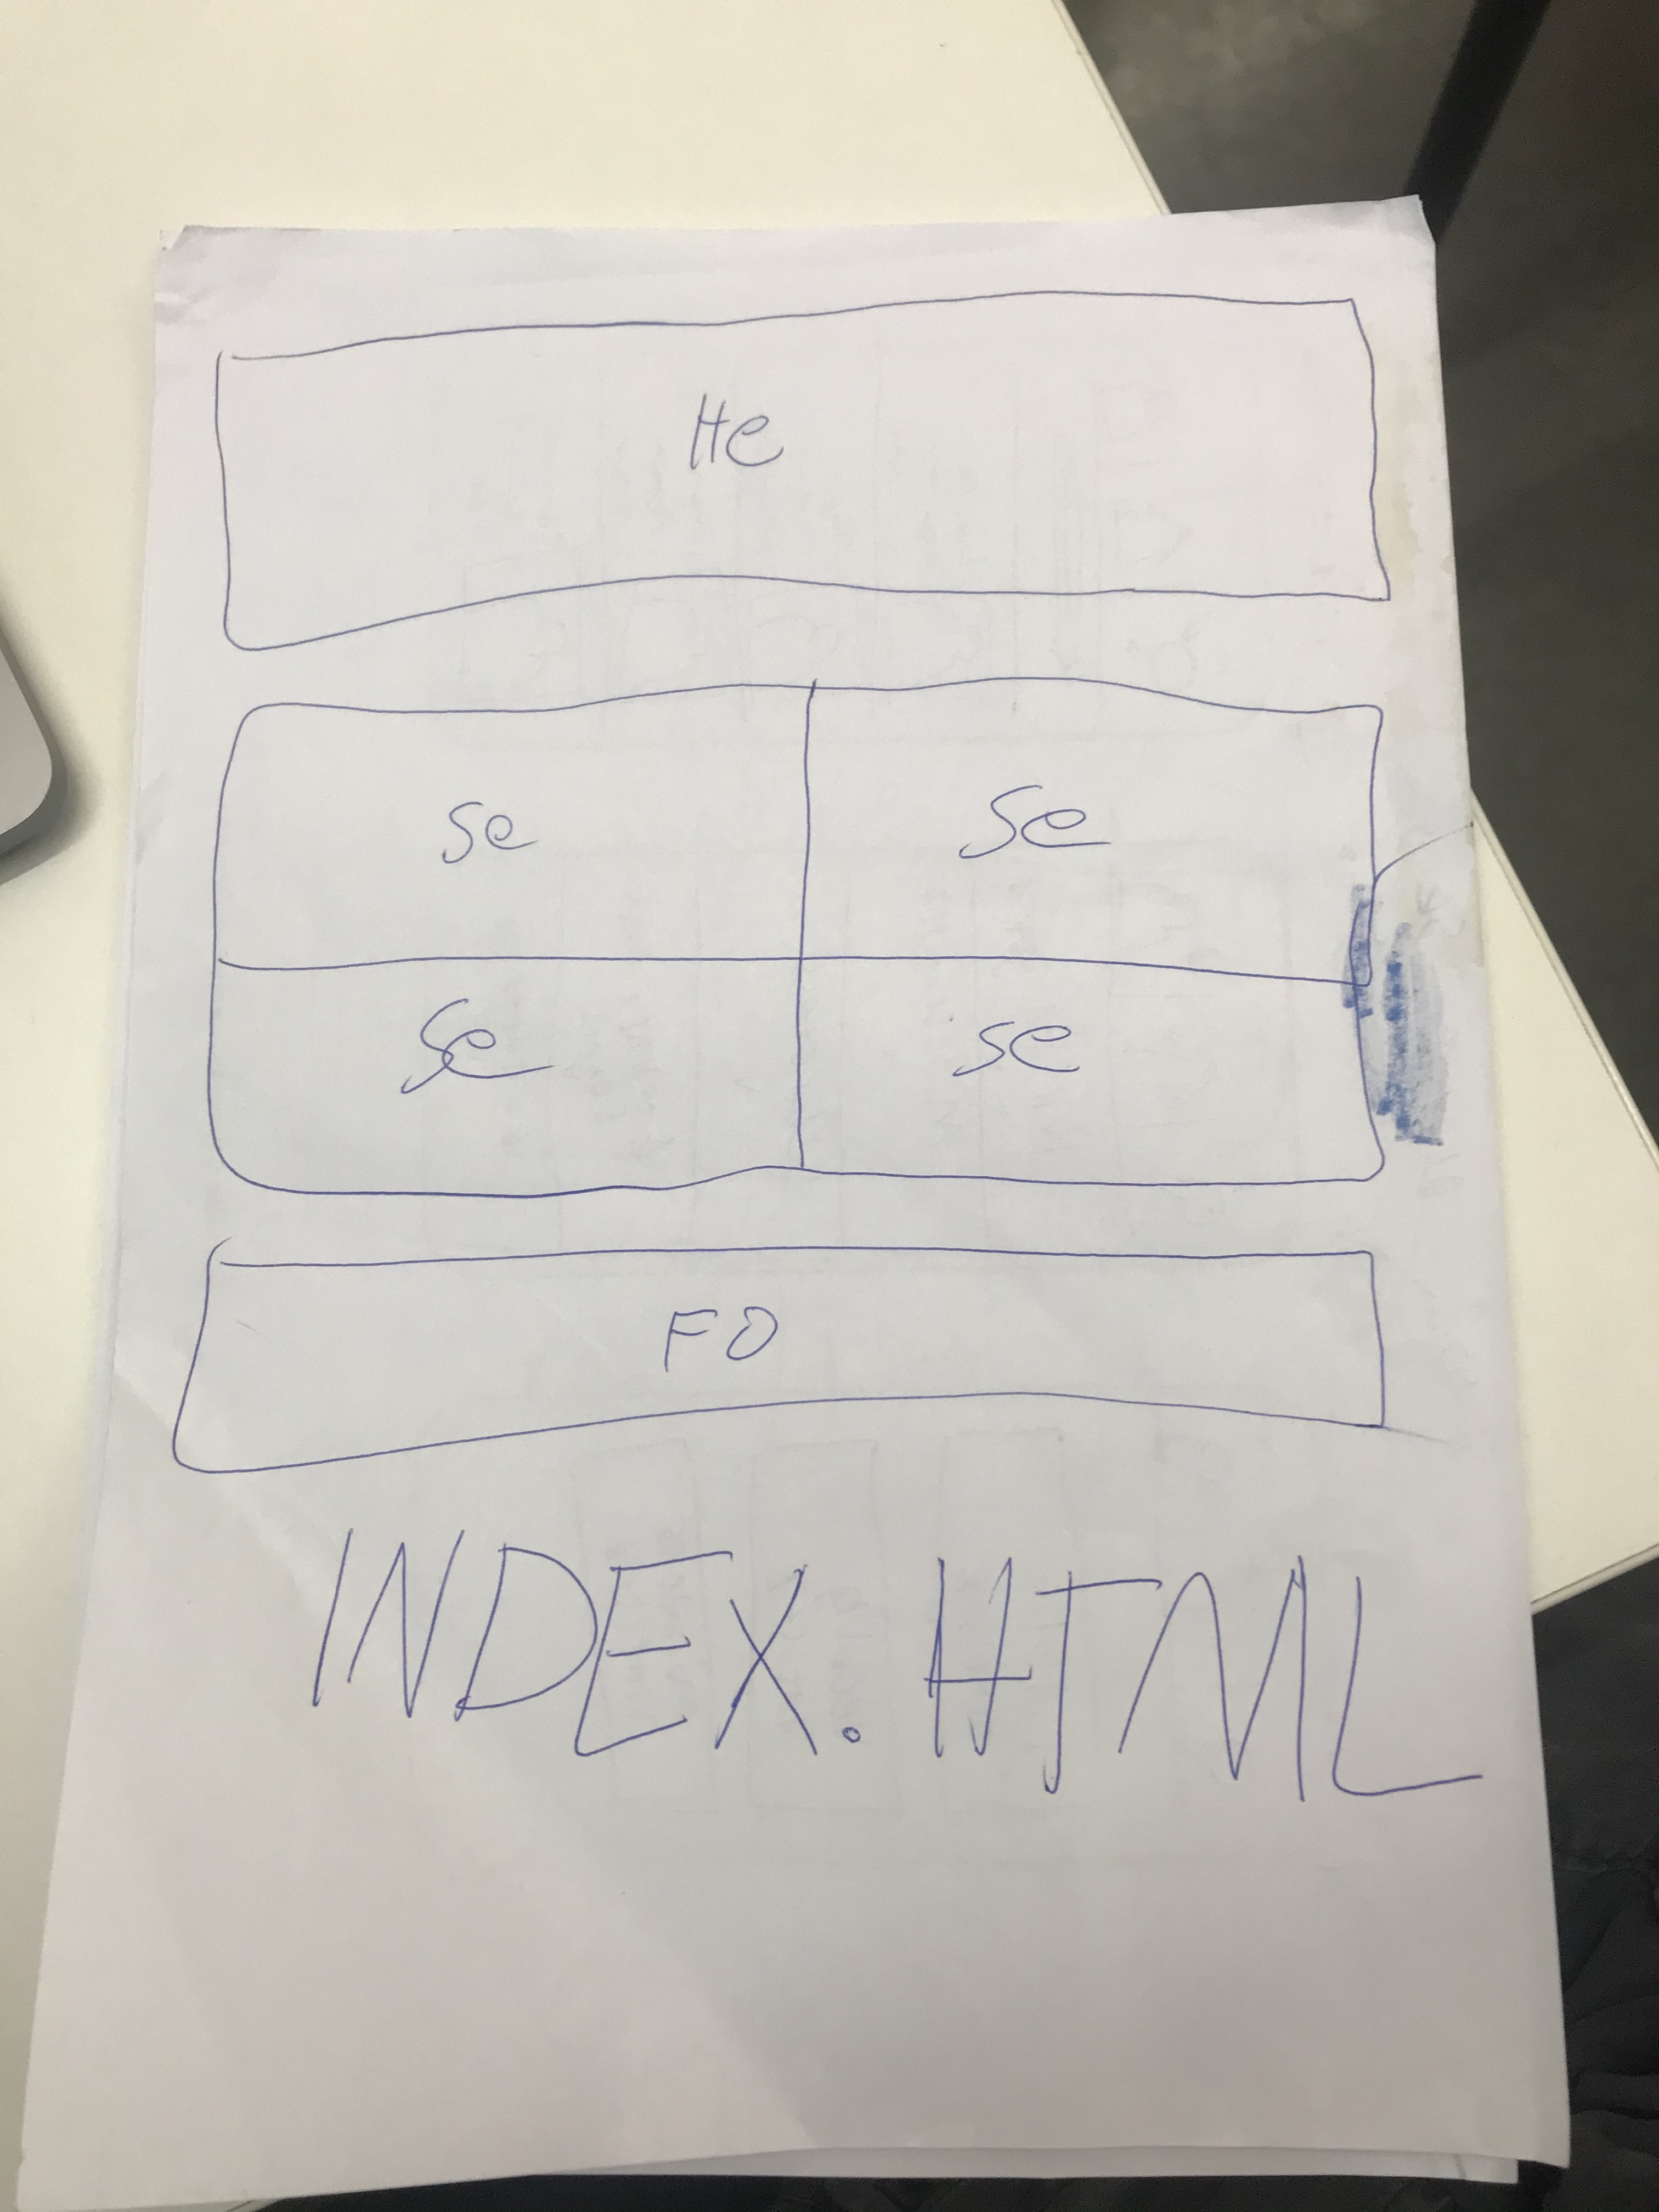 He
se se
se se
FO
INDEX.HTML